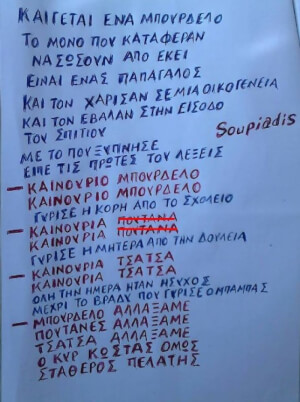 ΚΑΙΓΕΤΑΙ ΕΝΑ ΜΠΟΥΡΔΕΛΟ
ΤΟ ΜΟΝΟ ΠΟΥ ΚΑΤΑΦΕΡΑΝ
ΝΑ ΣΩΣΟΥΝ ΑΠΟ ΕΚΕΙ
ΕΙΝΑΙ ΕΝΑΣ ΠΑΠΑΓΑΛΟΣ
ΚΑΙ ΤΟΝ ΧΑΡΙΣΑΝ ΣΕ ΜΙΑ ΟΙΚΟΓΕΝΕΙΑ
ΚΑΙ ΤΟΝ ΕΒΑΛΑΝ ΣΤΗΝ ΕΙΣΟΔΟ
ΤΟΥ ΣΠΙΤΙΟΥ
Soupiadis
ΜΕ ΤΟ ΠΟΥ ΞΥΠΝΗΣΕ
ΕΙΠΕ ΤΙΣ ΠΡΩΤΕΣ ΤΟΥ ΛΕΞΕΙΣ
— ΚΑΙΝΟΥΡΙΟ ΜΠΟΥΡΔΕΛΟ
ΚΑΙΝΟΥΡΙΟ ΜΠΟΥΡΔΕΛΟ
ΓΥΡΙΣΕ Η ΚΟΡΗ ΑΠΟ ΤΟ ΣΧΟΛΕΙΟ
— ΚΑΙΝΟΥΡΙΑ ΠΟΥΤΑΝΑ
ΚΑΙΝΟΥΡΙΑ ΠΟΥΤΑΝΑ
ΓΥΡΙΣΕ Η ΜΗΤΕΡΑ ΑΠΟ ΤΗΝ ΔΟΥΛΕΙΑ
— ΚΑΙΝΟΥΡΙΑ ΤΣΑΤΣΑ
ΚΑΙΝΟΥΡΙΑ ΤΣΑΤΣΑ
ΟΛΗ ΤΗΝ ΗΜΕΡΑ ΗΤΑΝ ΗΣΥΧΟΣ
ΜΕΧΡΙ ΤΟ ΒΡΑΔΥ ΠΟΥ ΓΥΡΙΣΕ Ο ΜΠΑΜΠΑΣ
— ΜΠΟΥΡΔΕΛΟ ΑΛΛΑΞΑΜΕ
ΠΟΥΤΑΝΕΣ ΑΛΛΑΞΑΜΕ
ΤΣΑΤΣΑ ΑΛΛΑΞΑΜΕ
Ο ΚΥΡ ΚΩΣΤΑΣ ΟΜΩΣ
ΣΤΑΘΕΡΟΣ ΠΕΛΑΤΗΣ